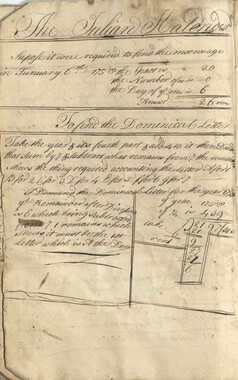 The Julian Kalender
Supose it were required to find the moons age
in January 6th 1758 the Epact is 20
the Number of m is 0
the Day of ye m is 6
Answer 26
To find the Dominical Letter
Take the year & its fourth part & add 4 to it then divide
that sum by 7 & subtract what remains from 7 the remainder
shows the thing required accounting the Letter A for 1
B for 2 C for 3 D for 4 E for 5 F for 6 G for 7
I Demand the Dominical Letter for the year 1758
ye Remainder after Division of year 1758
is 6 which being Subtracted of ¼ is 439
from 7 1 remains which
Shews it must be the 1st
Letter which is A the Dom